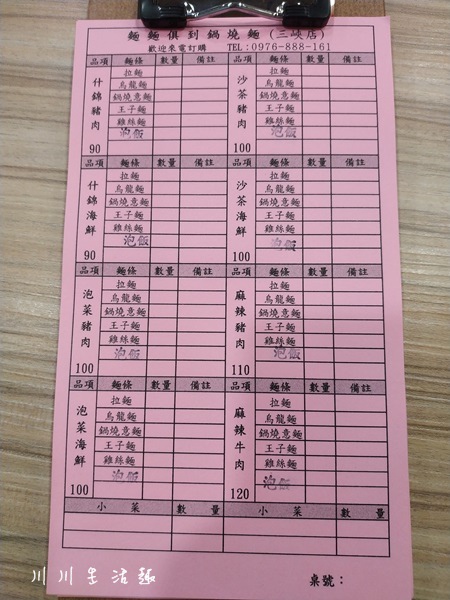 麵麵俱到鍋燒麵(三峽店)
歡迎來電訂購 TEL:0976-888-161
品項 麵條 數量 備註
什錦豬肉 90
拉麵
烏龍麵
鍋燒意麵
王子麵
雞絲麵
泡飯
品項 麵條 數量 備註
沙茶豬肉 100
拉麵
烏龍麵
鍋燒意麵
王子麵
雞絲麵
泡飯
品項 麵條 數量 備註
什錦海鮮 90
拉麵
烏龍麵
鍋燒意麵
王子麵
雞絲麵
泡飯
品項 麵條 數量 備註
沙茶海鮮 100
拉麵
烏龍麵
鍋燒意麵
王子麵
雞絲麵
泡飯
品項 麵條 數量 備註
泡菜豬肉 100
拉麵
烏龍麵
鍋燒意麵
王子麵
雞絲麵
泡飯
品項 麵條 數量 備註
麻辣豬肉 110
拉麵
烏龍麵
鍋燒意麵
王子麵
雞絲麵
泡飯
品項 麵條 數量 備註
泡菜海鮮 100
拉麵
烏龍麵
鍋燒意麵
王子麵
雞絲麵
泡飯
品項 麵條 數量 備註
麻辣牛肉 120
拉麵
烏龍麵
鍋燒意麵
王子麵
雞絲麵
泡飯
小菜 數量 小菜 數量
桌號:
川川生活趣